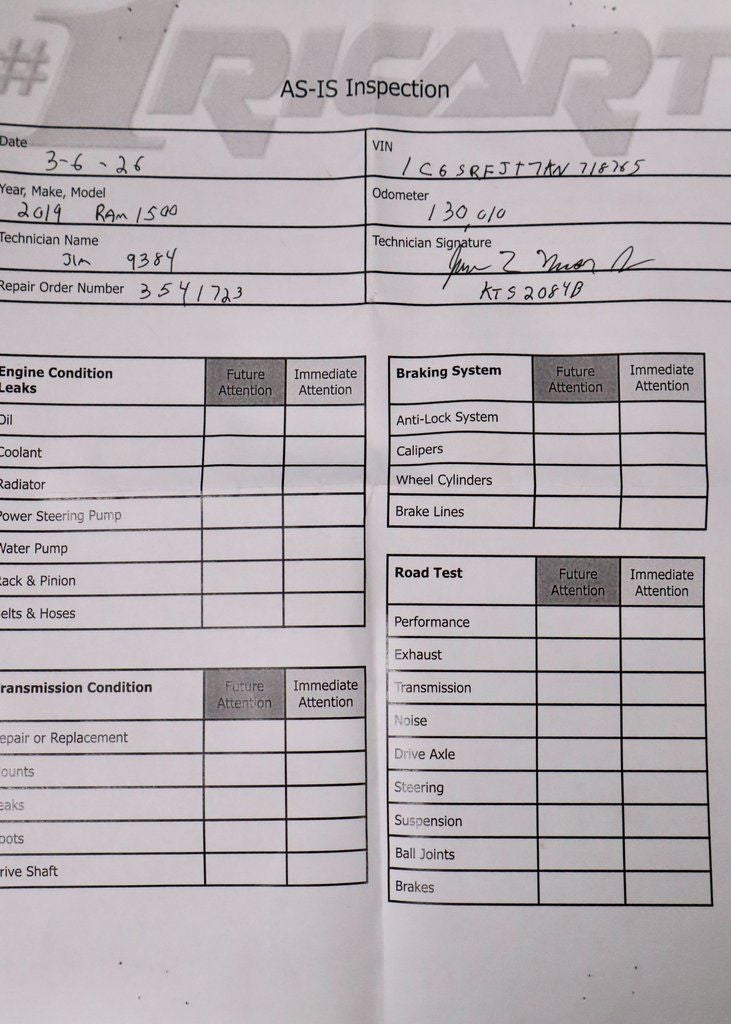 #1 RICART
AS-IS Inspection
Date 3-6-26
VIN 1C6SRFJT7KN718765
Year, Make, Model 2019 RAM 1500
Odometer 130,010
Technician Name Jim 9384
Technician Signature
Repair Order Number 3541723
KTS2084B
Engine Condition Future Immediate
Leaks Attention Attention
Oil
Coolant
Radiator
Power Steering Pump
Water Pump
Rack & Pinion
elts & Hoses
ransmission Condition Future Immediate
Attention Attention
epair or Replacement
ounts
eaks
oots
rive Shaft
Braking System Future Immediate
Attention Attention
Anti-Lock System
Calipers
Wheel Cylinders
Brake Lines
Road Test Future Immediate
Attention Attention
Performance
Exhaust
Transmission
Noise
Drive Axle
Steering
Suspension
Ball Joints
Brakes